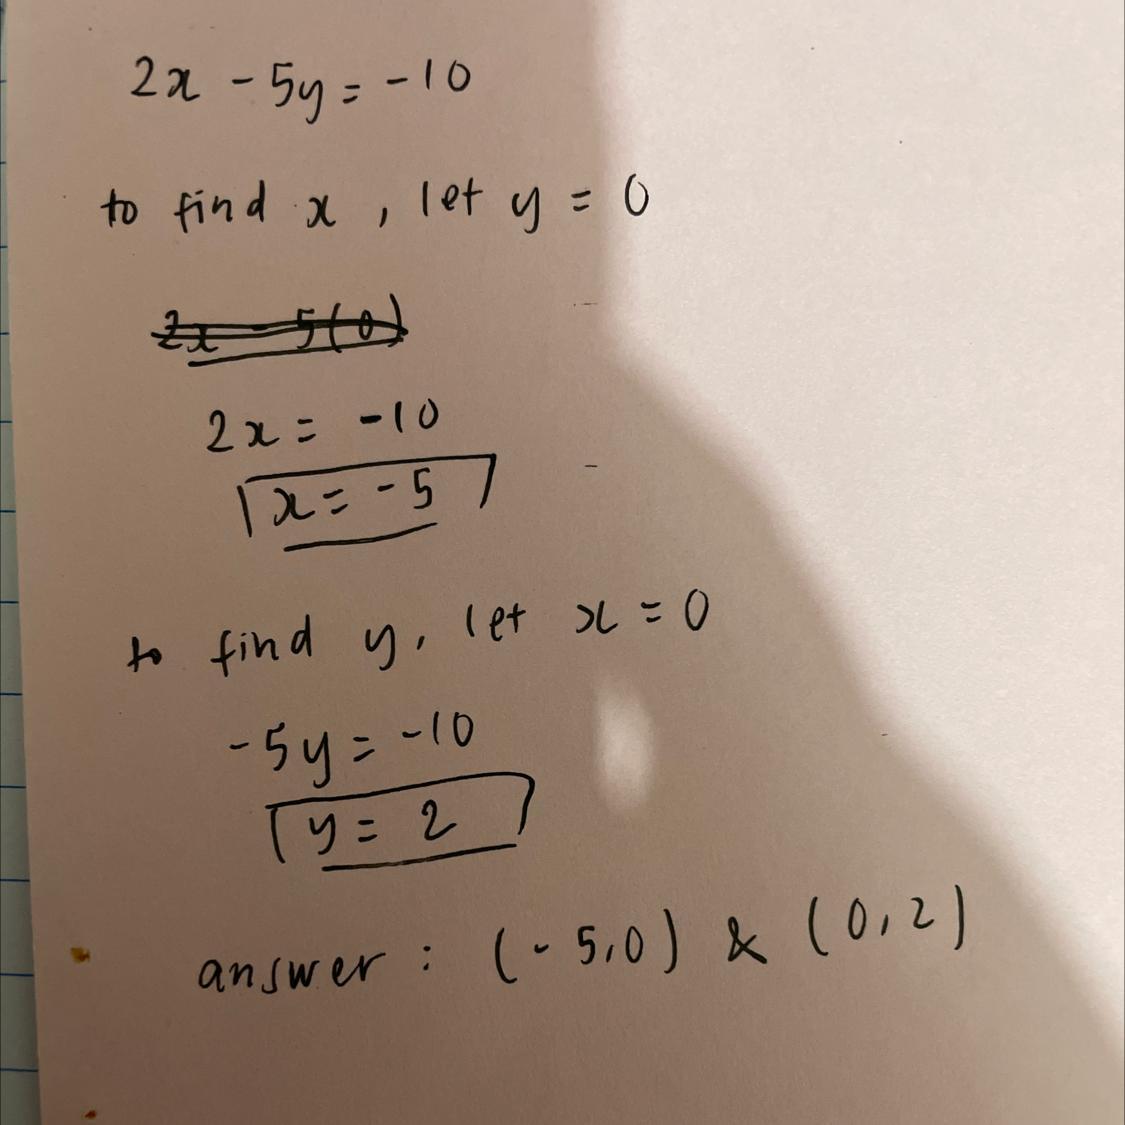 2x - 5y = -10
to find x, let y = 0
2x - 5(0)
2x = -10
x = -5
to find y, let x = 0
-5y = -10
y = 2
answer : (-5,0) & (0,2)